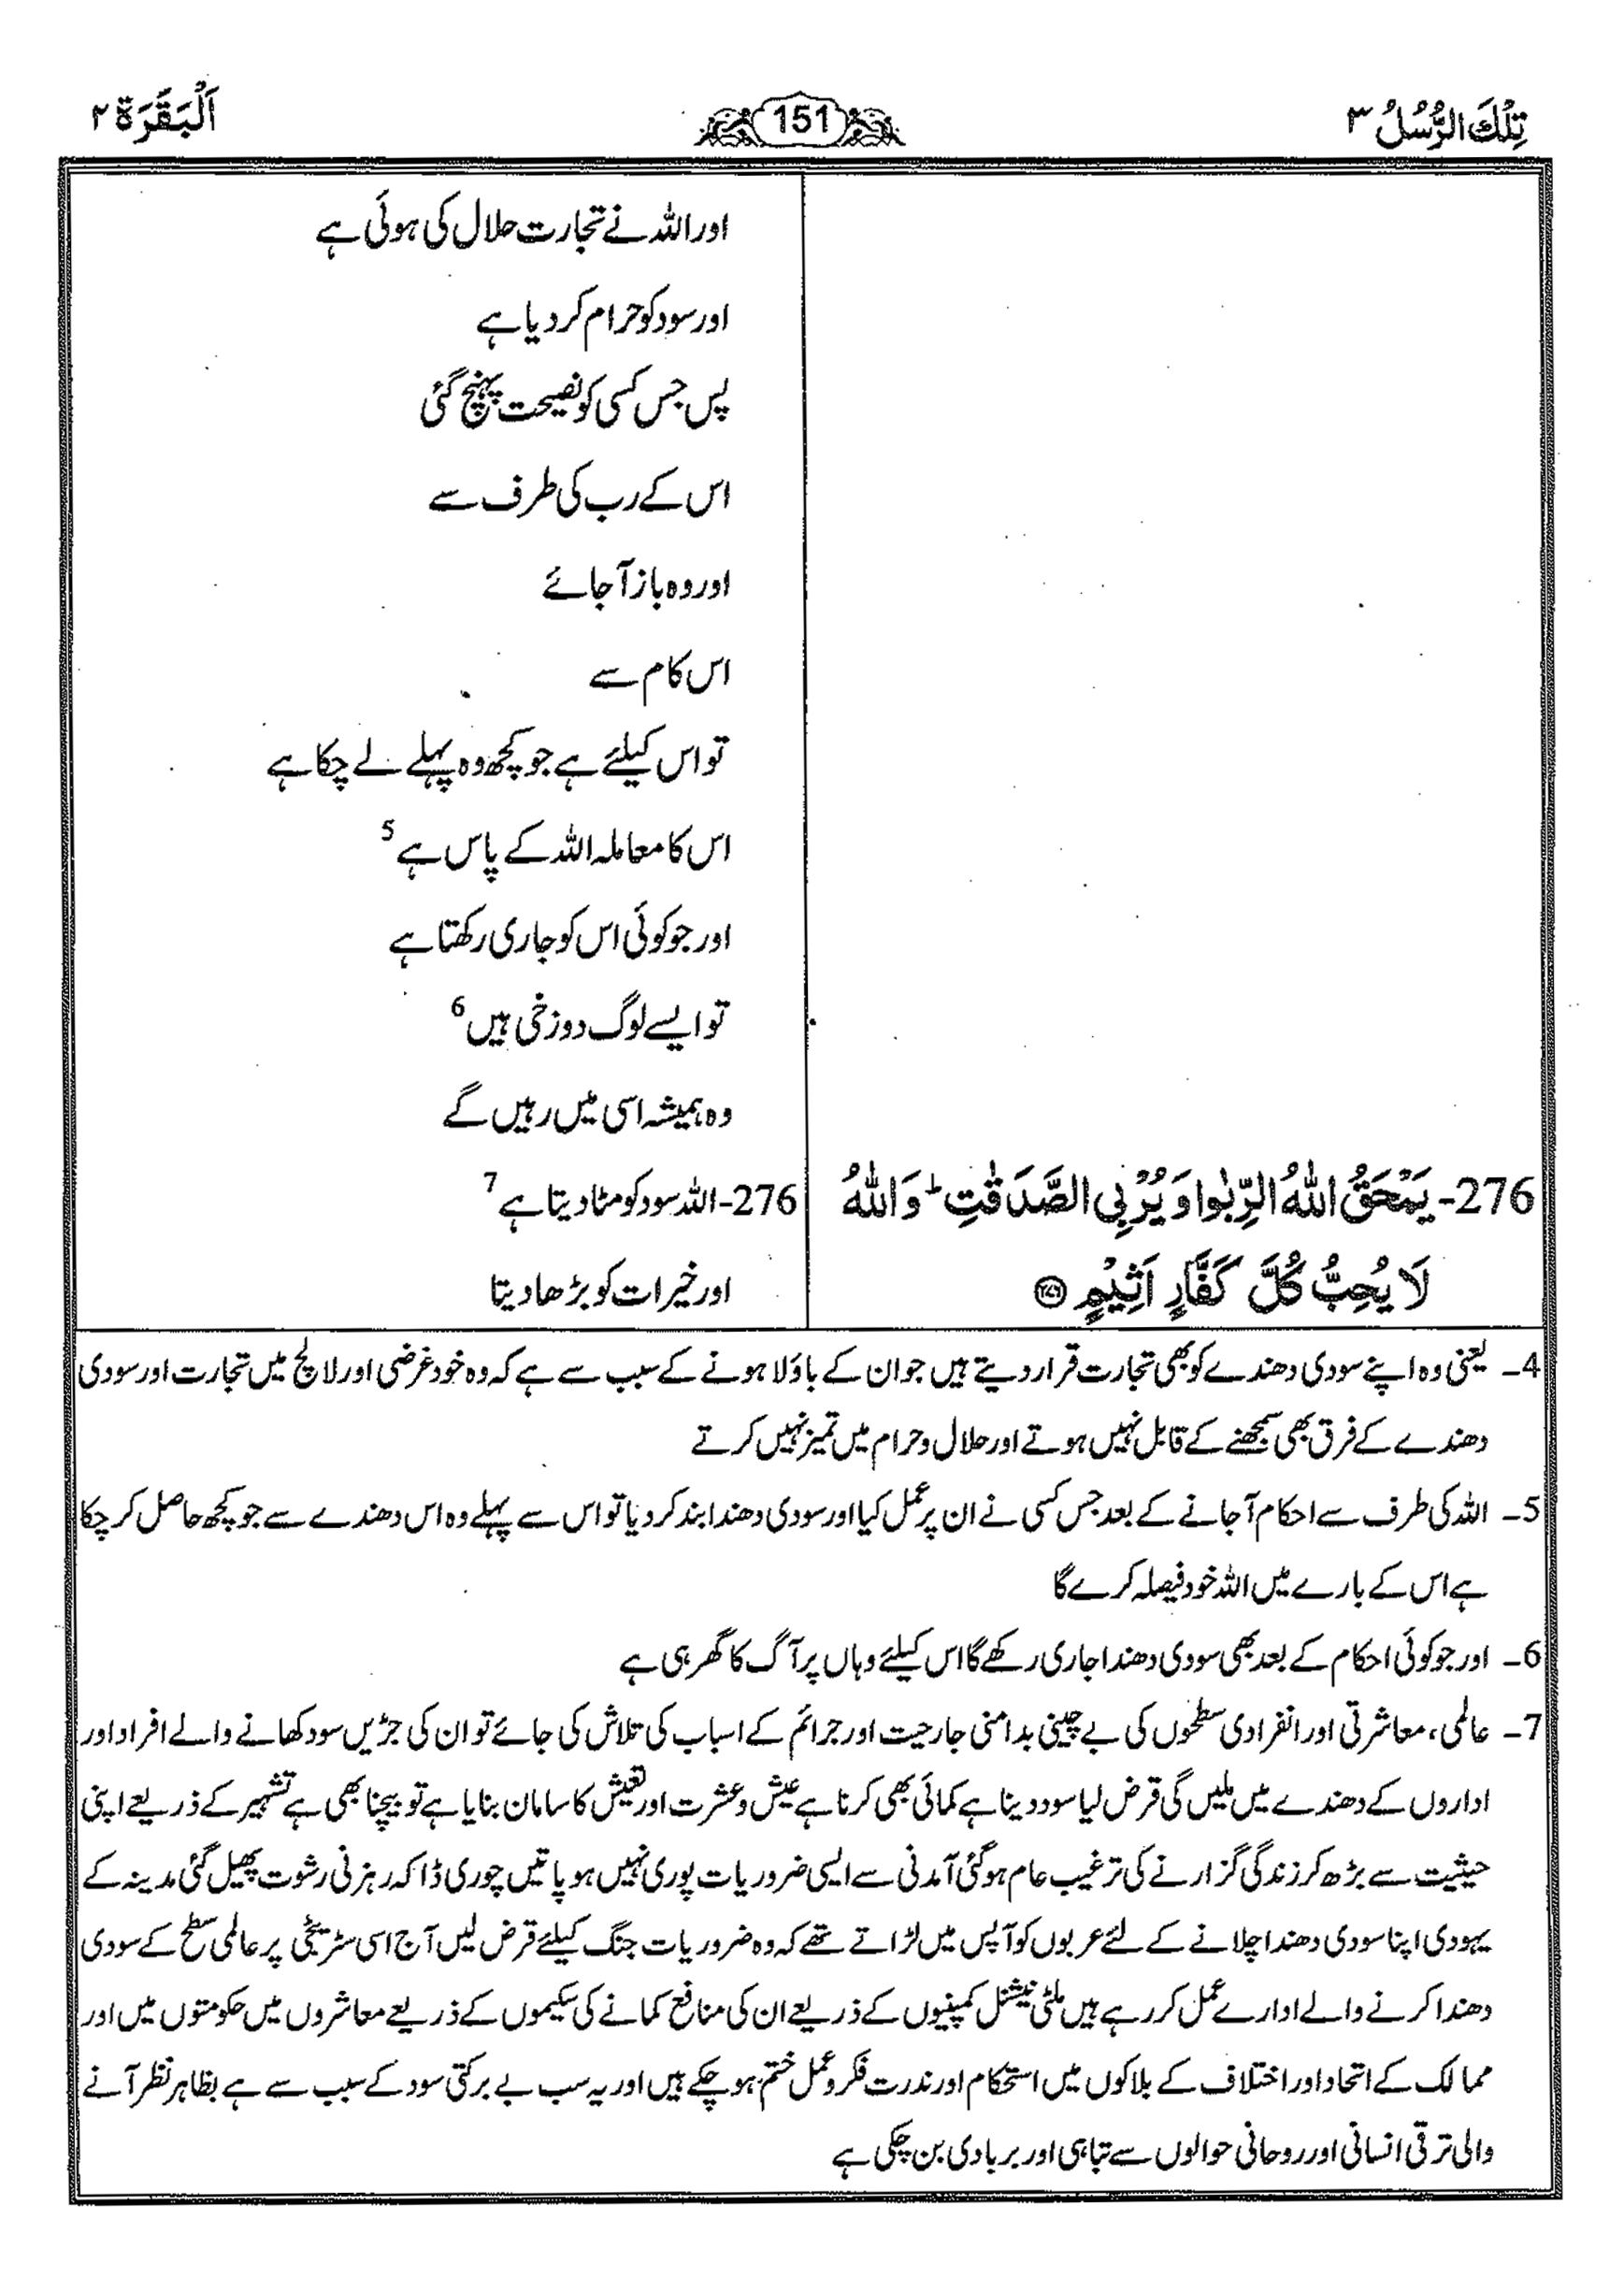 تِلْكَ الرُّسُلُ ٣
151
اَلْبَقَرَة ٢
276- يَمْحَقُ اللّٰهُ الرِّبٰوا وَ يُرْبِى الصَّدَقٰتِ ؕ وَ اللّٰهُ
لَا يُحِبُّ كُلَّ كَفَّارٍ اَثِيْمٍ ۝۲۷۶
اور اللہ نے تجارت حلال کی ہوئی ہے
اور سود کو حرام کر دیا ہے
پس جس کسی کو نصیحت پہنچ گئی
اس کے رب کی طرف سے
اور وہ باز آ جائے
اس کام سے
تو اس کیلئے ہے جو کچھ وہ پہلے لے چکا ہے
اس کا معاملہ اللہ کے پاس ہے 5
اور جو کوئی اس کو جاری رکھتا ہے
تو ایسے لوگ دوزخی ہیں 6
وہ ہمیشہ اسی میں رہیں گے
276- اللہ سود کو مٹا دیتا ہے 7
اور خیرات کو بڑھا دیتا
4۔ یعنی وہ اپنے سودی دھندے کو بھی تجارت قرار دیتے ہیں جو ان کے باؤلا ہونے کے سبب سے ہے کہ وہ خود غرضی اور لالچ میں تجارت اور سودی
دھندے کے فرق بھی سمجھنے کے قابل نہیں ہوتے اور حلال و حرام میں تمیز نہیں کرتے
5۔ اللہ کی طرف سے احکام آ جانے کے بعد جس کسی نے ان پر عمل کیا اور سودی دھندا بند کر دیا تو اس سے پہلے وہ اس دھندے سے جو کچھ حاصل کر چکا
ہے اس کے بارے میں اللہ خود فیصلہ کرے گا
6۔ اور جو کوئی احکام کے بعد بھی سودی دھندا جاری رکھے گا اس کیلئے وہاں پر آگ کا گھر ہی ہے
7۔ عالمی، معاشرتی اور انفرادی سطحوں کی بے چینی بدامنی جارحیت اور جرائم کے اسباب کی تلاش کی جائے تو ان کی جڑیں سود کھانے والے افراد اور
اداروں کے دھندے میں ملیں گی قرض لیا سود دینا ہے کمائی بھی کرنا ہے عیش و عشرت اور تعیش کا سامان بنایا ہے تو بیچنا بھی ہے تشہیر کے ذریعے اپنی
حیثیت سے بڑھ کر زندگی گزارنے کی ترغیب عام ہو گئی آمدنی سے ایسی ضروریات پوری نہیں ہو پاتیں چوری ڈاکہ رہزنی رشوت پھیل گئی مدینہ کے
یہودی اپنا سودی دھندا چلانے کے لئے عربوں کو آپس میں لڑاتے تھے کہ وہ ضروریات جنگ کیلئے قرض لیں آج اسی سٹریٹجی پر عالمی سطح کے سودی
دھندا کرنے والے ادارے عمل کر رہے ہیں ملٹی نیشنل کمپنیوں کے ذریعے ان کی منافع کمانے کی سکیموں کے ذریعے معاشروں میں حکومتوں میں اور
ممالک کے اتحاد اور اختلاف کے بلاکوں میں استحکام اور ندرت فکر و عمل ختم ہو چکے ہیں اور یہ سب بے برکتی سود کے سبب سے ہے بظاہر نظر آنے
والی ترقی انسانی اور روحانی حوالوں سے تباہی اور بربادی بن چکی ہے